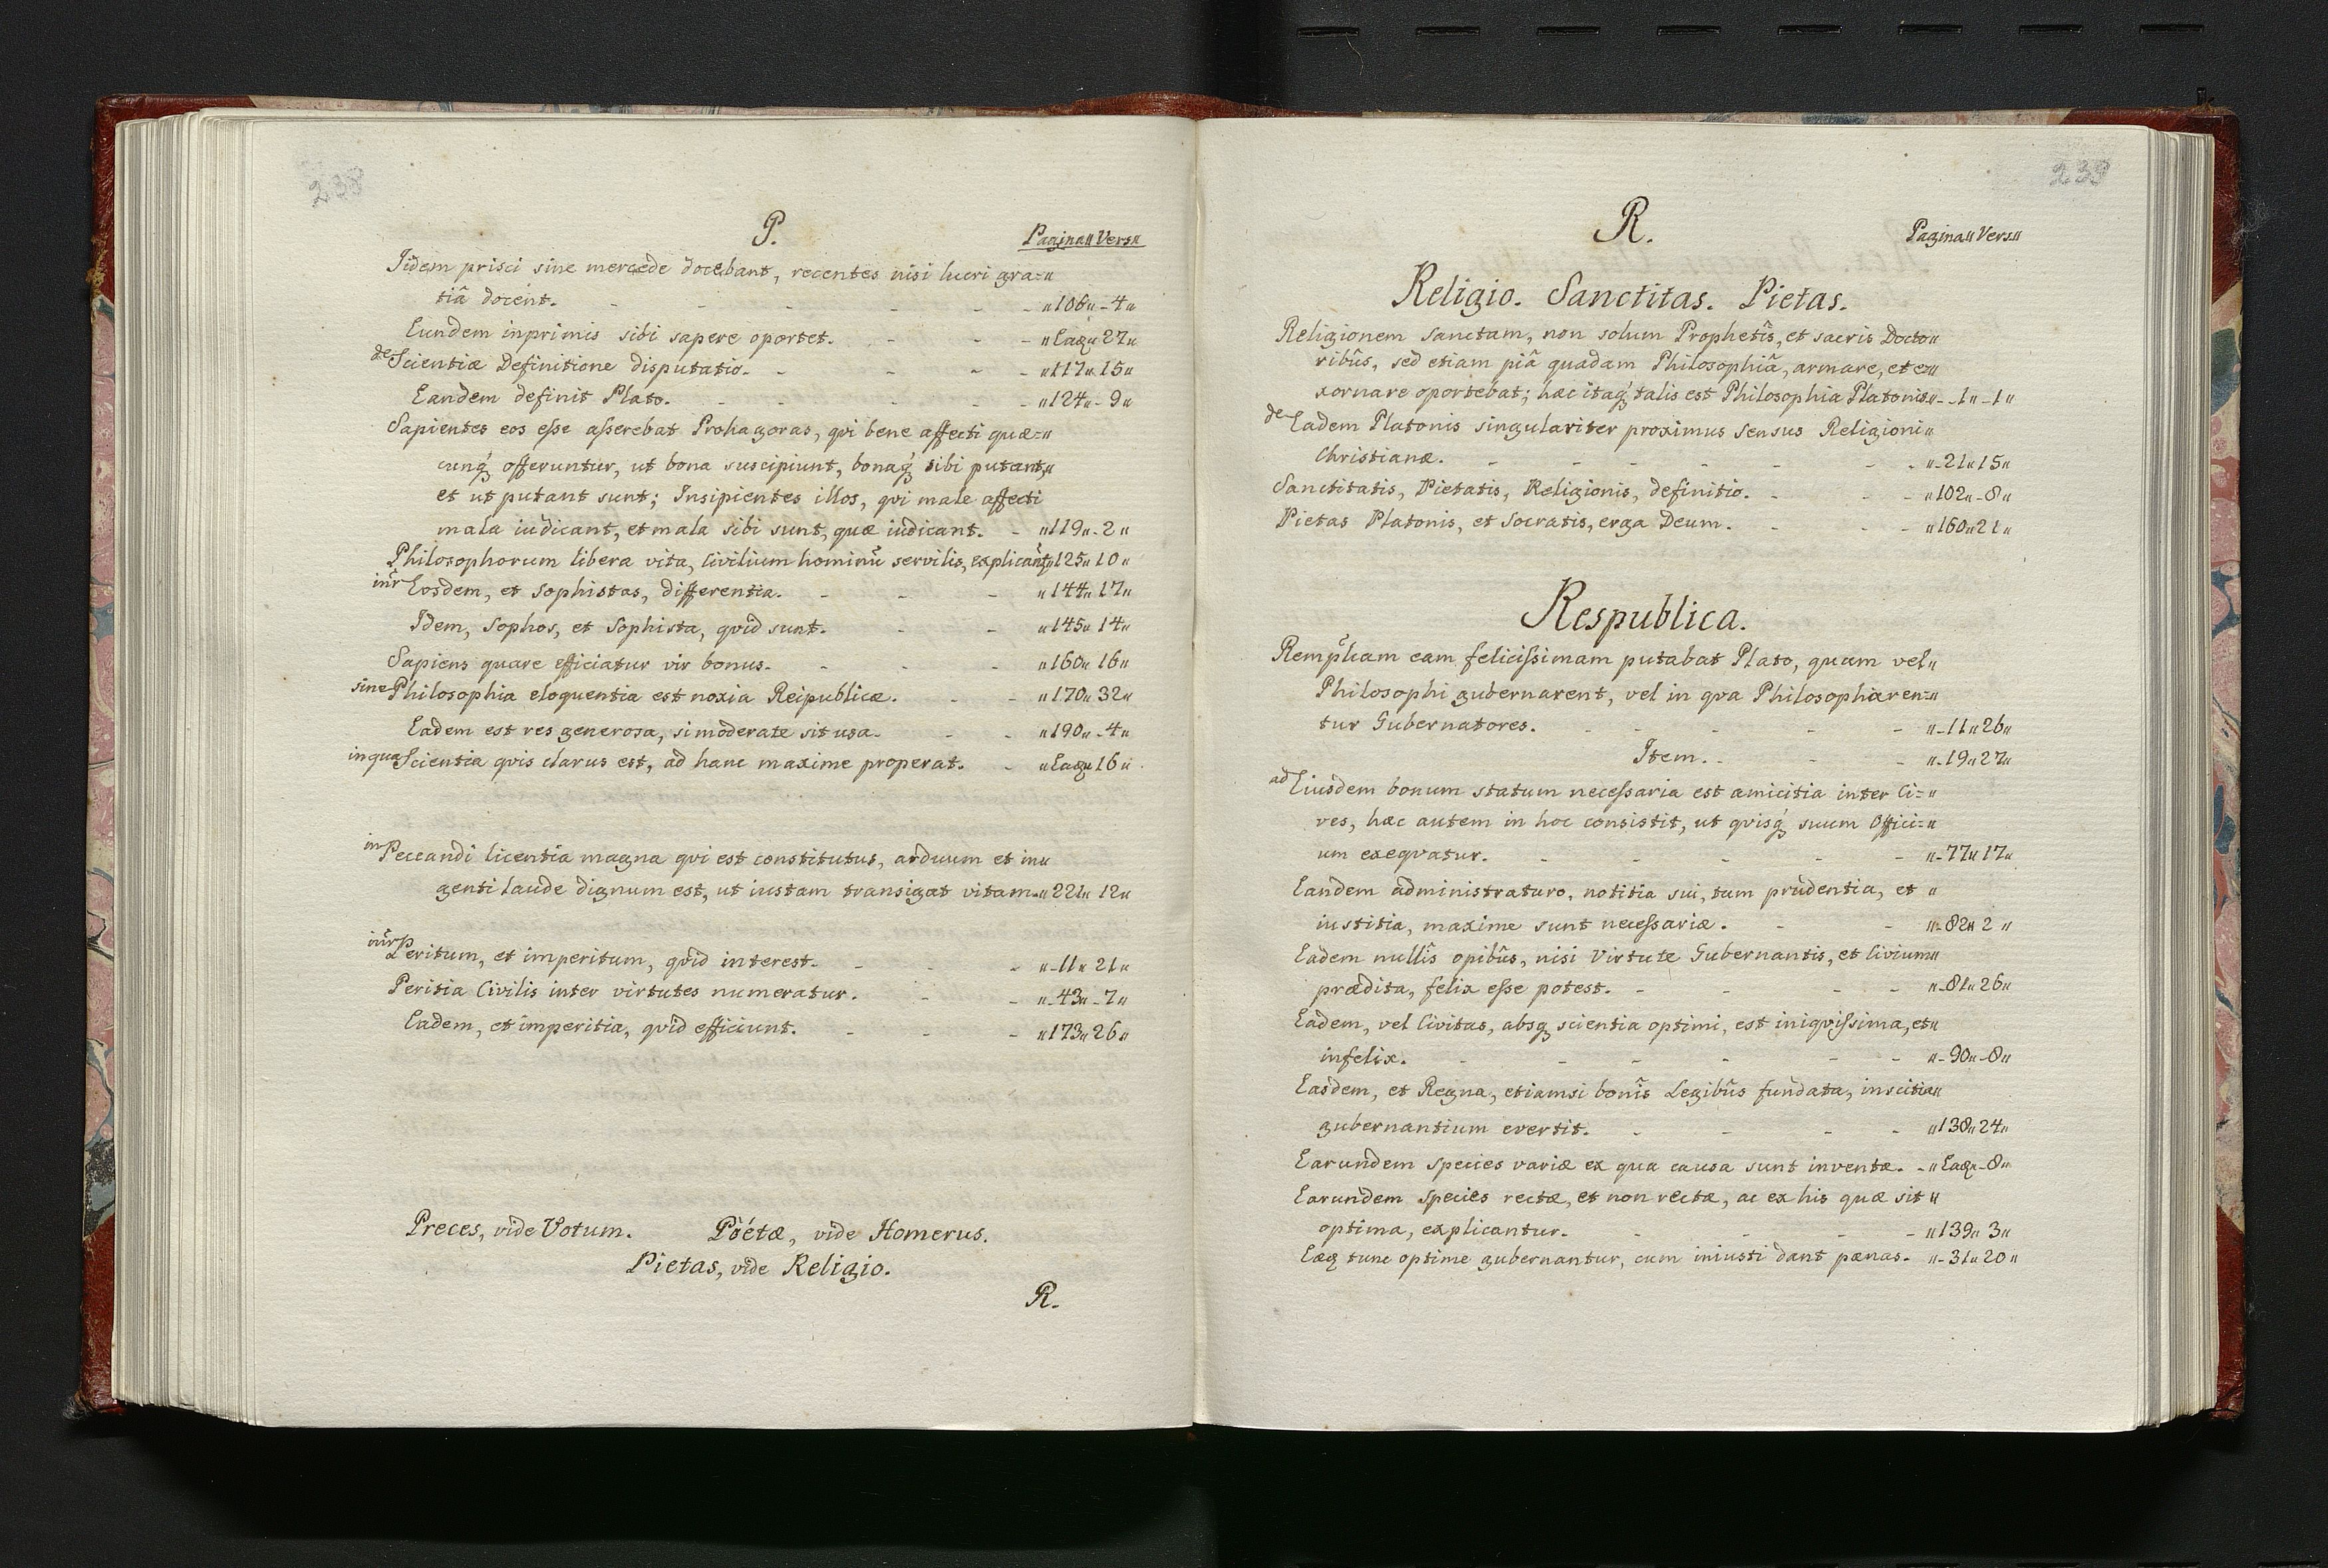 238
P.
Pagina〃Vers〃
Iidem prisci sine mercede docebant, recentes nisi lucri gra=〃
tiâ docent. - - - - - - 〃106〃-4〃
Eundem inprimis sibi sapere oportet. - - - 〃Eaq〃27〃
de Scientiæ Definitione disputatio. - - - - 〃117〃15〃
Eandem definit Plato. - - - - - 〃124〃-9〃
Sapientes eos esse asserebat Prohagoras, qvi bene affecti quæ=〃
cunq́ offeruntur, ut bona suscipiunt, bonaq́ sibi putant,〃
et ut putant sunt; Insipientes illos, qvi male affecti
mala iudicant, et mala sibi sunt, quæ iudicant. - 〃119〃-2〃
Philosophorum libera vita, Civilium hominū servilis, explicant〃125〃10〃
intr̄ Eosdem, et Sophistas, differentia. - - - 〃144〃17〃
Idem, Sophos, et Sophista, qvid sunt. - - 〃145〃14〃
Sapiens quare efficiatur vir bonus. - - - 〃160〃16〃
sine Philosophia eloquentia est noxia Reipublicæ. - - 〃170〃32〃
Eadem est res generosa, si moderate sit usa. - - 〃190〃-4〃
in qua Scientia qvis clarus est, ad hanc maxime properat. - 〃Eaq〃16〃
in Peccandi licentia magna qvi est constitutus, arduum et in〃
genti laude dignum est, ut iustam transigat vitam.〃221〃12〃
intr̄ Peritum, et imperitum, qvid interest. - - - 〃-11〃21〃
Peritia Civilis inter virtutes numeratur. - - 〃-43〃-7〃
Eadem, et imperitia, qvid efficiunt. - - - 〃173〃26〃
Preces, vide Votum. Pöétæ, vide Homerus.
Pietas, vide Religio.
R.
239
R.
Pagina〃Vers〃
Religio. Sanctitas. Pietas.
Religionem Sanctam, non solum Prophetîs, et sacris Docto〃
ribûs, sed etiam piâ quadam Philosophiâ, armare, et e〃
xornare oportebat; hæc itaq́ talis est Philosophia Platonis〃-1〃-1〃
de Eadem Platonis singulariter proximus Sensus Religioni〃
Christianæ. - - - - - - - 〃-21〃15〃
Sanctitatis, Pietatis, Religionis, definitio. - - - 〃102〃-8〃
Pietas Platonis, et Socratis, erga Deum. - - - 〃160〃21〃
Respublica.
Remp̄licam eam felicissimam putabat Plato, quam vel〃
Philosophi gubernarent, vel in qva Philosopharen=〃
tur Gubernatores. - - - - - 〃-11〃26〃
Item. - - - 〃-19〃27〃
ad Eiusdem bonum statum necessaria est amicitia inter Ci=〃
ves, hæc autem in hoc consistit, ut qvisq́ suum Offici=〃
um exeqvatur. - - - - - 〃-77〃17〃
Eandem administraturo, notitia sui, tum prudentia, et 〃
iustitia, maxime sunt necessariæ. - - 〃-82〃2 〃
Eadem nullîs opibûs, nisi Virtute Gubernantis, et Civium〃
prædita, felix esse potest. - - - - 〃-81〃26〃
Eadem, vel Civitas, absq́ scientia optimi, est iniqvissima, et〃
infelix. - - - - - - 〃-90〃-8〃
Easdem, et Regna, etiamsi bonîs Legibûs fundata, inscitia〃
gubernantium evertit. - - - - 〃138〃24〃
Earundem species variæ ex qua causa sunt inventæ. - 〃Eaq〃-8〃
Earundem species rectæ, et non rectæ, ac ex his quæ sit 〃
optima, explicantur. - - - - - 〃139〃3〃
Eæq tunc optime gubernantur, cum iniusti dant pænas. - 〃-31〃20〃